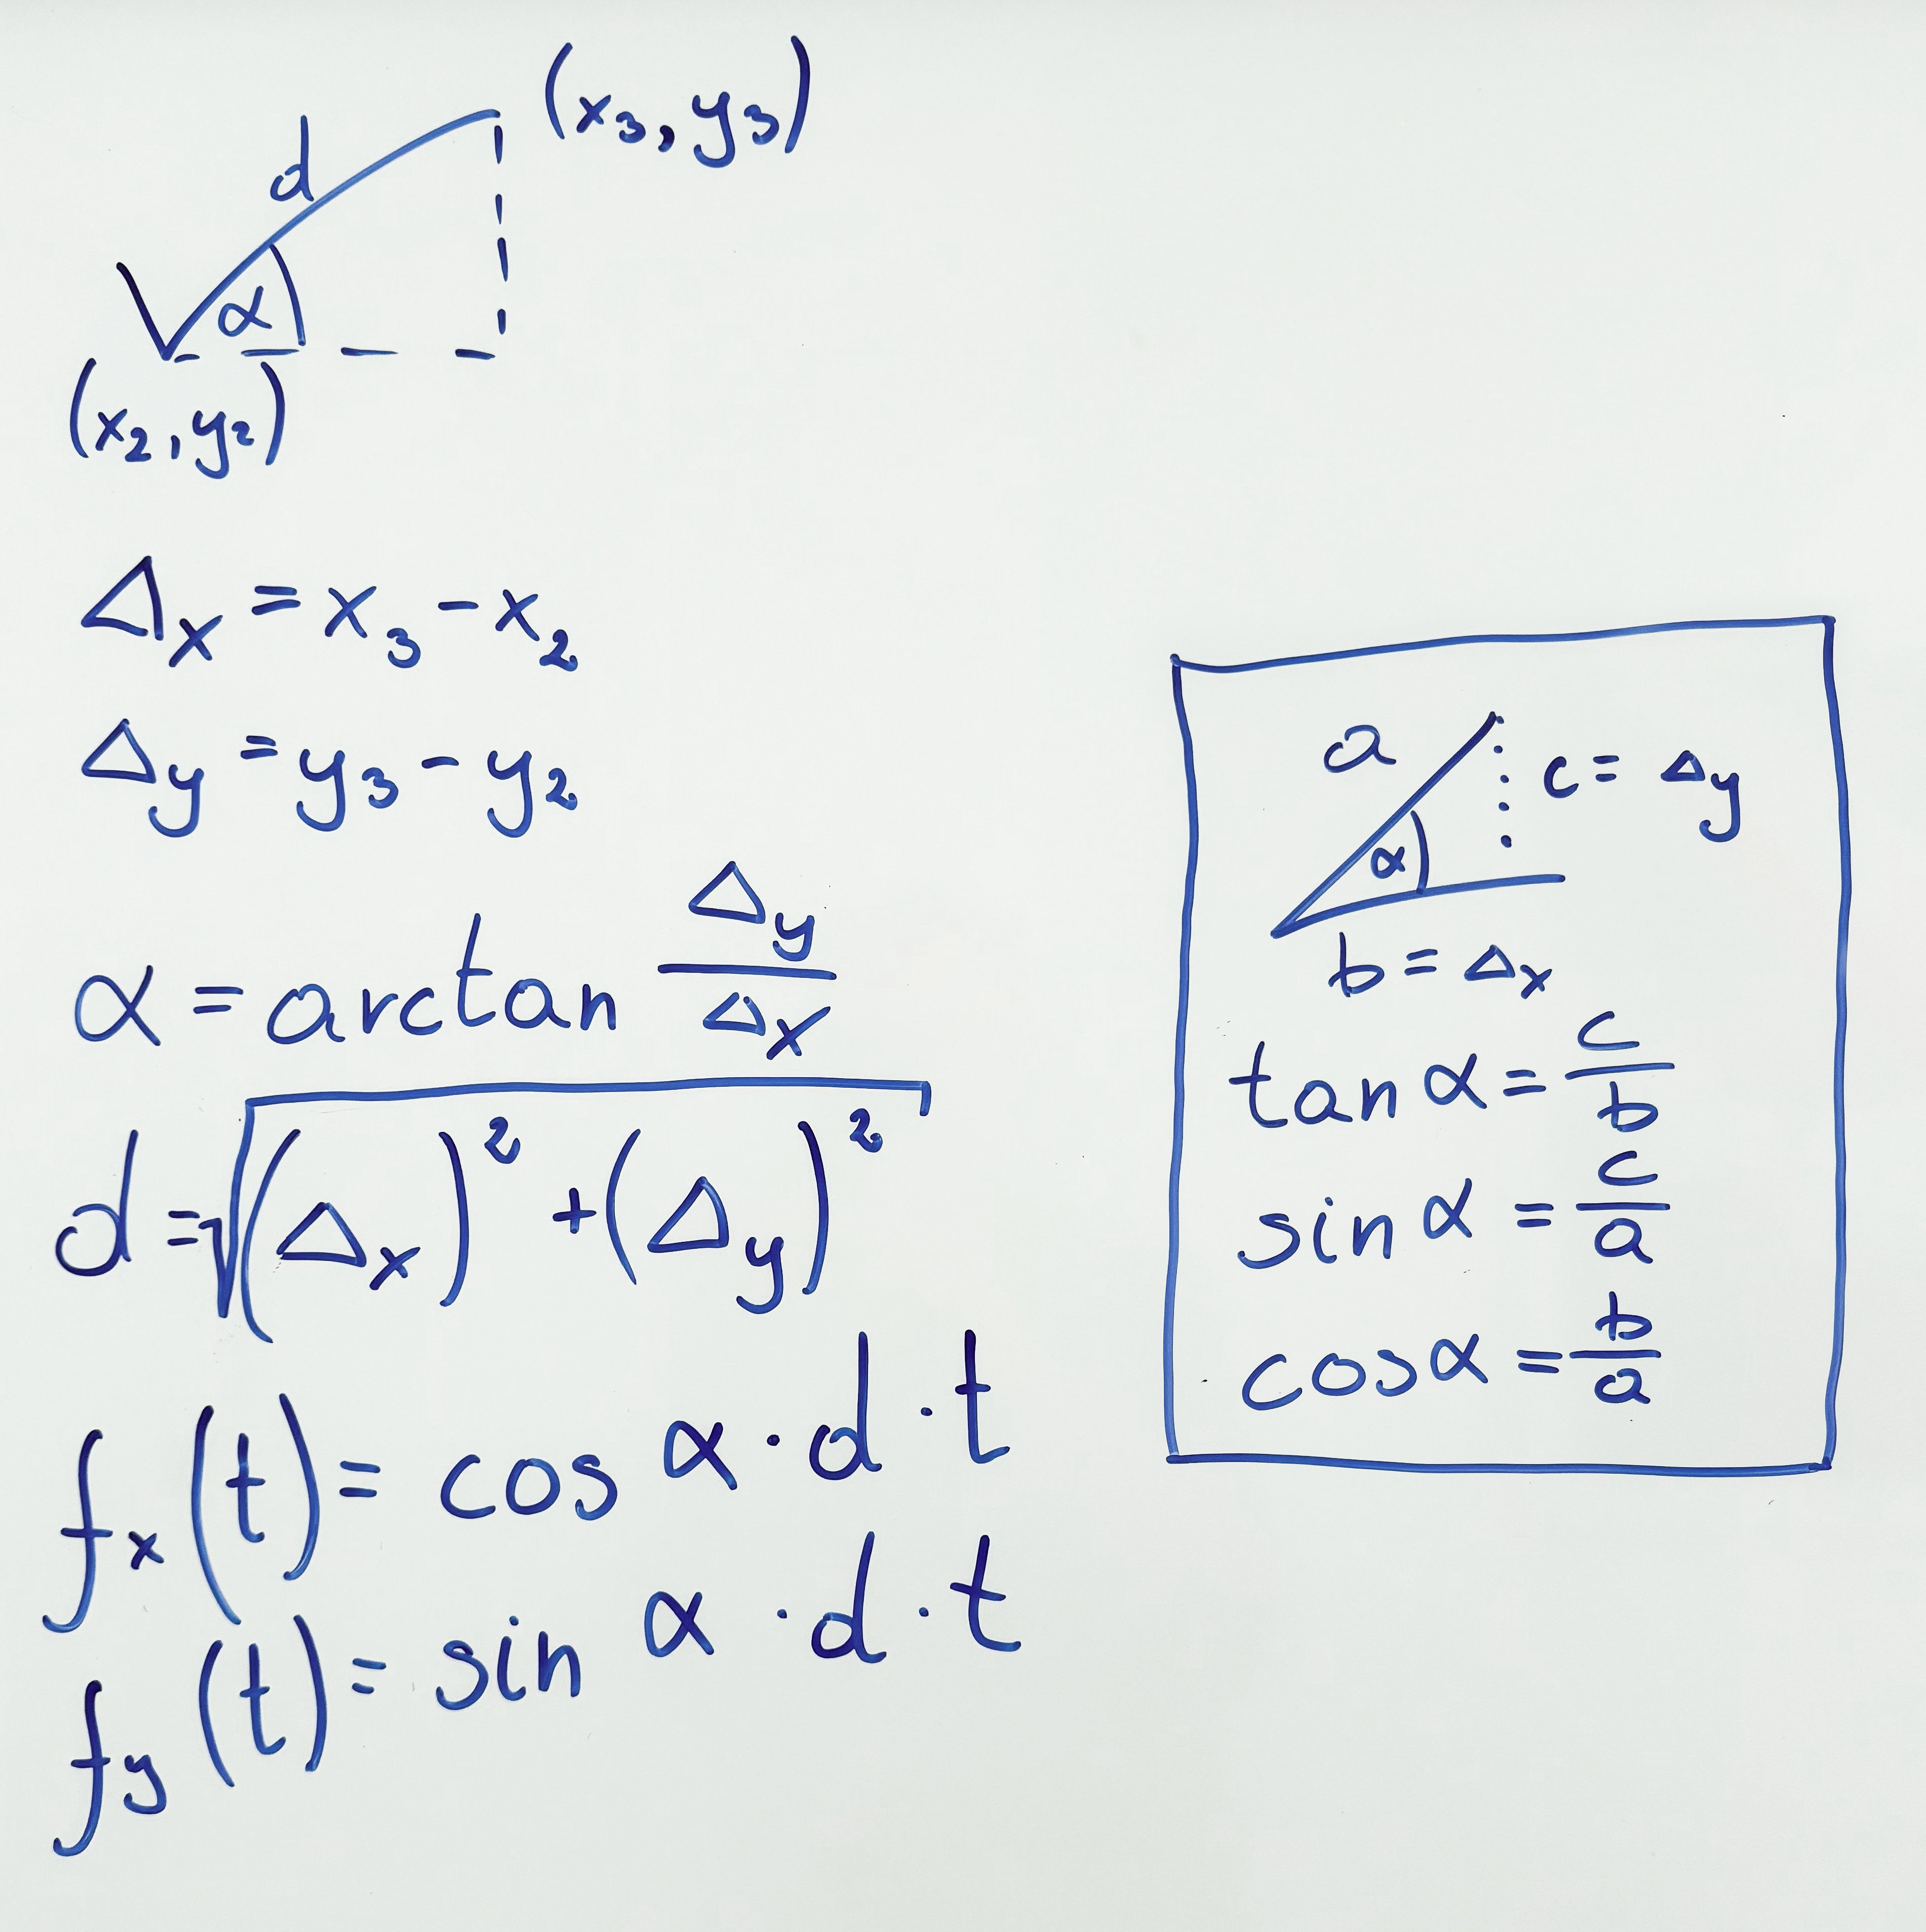 (x₃, y₃)
d
α
(x₂, y₂)
Δx = x₃ - x₂
Δy = y₃ - y₂
α = arctan Δy/Δx
d = √((Δx)² + (Δy)²)
fx(t) = cos α · d · t
fy(t) = sin α · d · t
a
c = Δy
α
b = Δx
tan α = c/b
sin α = c/a
cos α = b/a